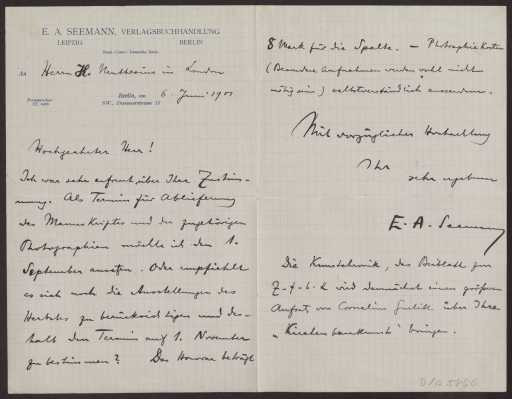 E. A. SEEMANN, VERLAGSBUCHHANDLUNG
LEIPZIG BERLIN
An Herrn H. Muthesius in London
Berlin, den 6. Juni 1901
SW.,
Hochgeehrter Herr!
Ich war sehr erfreut über Ihre Zustim-
mung. Als Termin für Ablieferung
des Manuskriptes und der zugehörigen
Photographien möchte ich den 1.
September ansetzen. Oder empfiehlt
es sich noch die Ausstellungen des
Herbstes zu berücksichtigen und des-
halb den Termin auf 1. November
zu bestimmen? Das Honorar beträgt
8 Mark für die Spalte. – Photographiekosten
(Besondere Aufnahmen werden wohl nicht
nötig sein) selbstverständlich ausserdem.
Mit vorzüglicher Hochachtung
Ihr
sehr ergebener
E. A. Seemann
Die Kunstchronik, das Beiblatt zur
Z. f. b. K wird demnächst einen größeren
Aufsatz von Cornelius Gurlitt über Ihre
„Kirchenbaukunst" bringen.